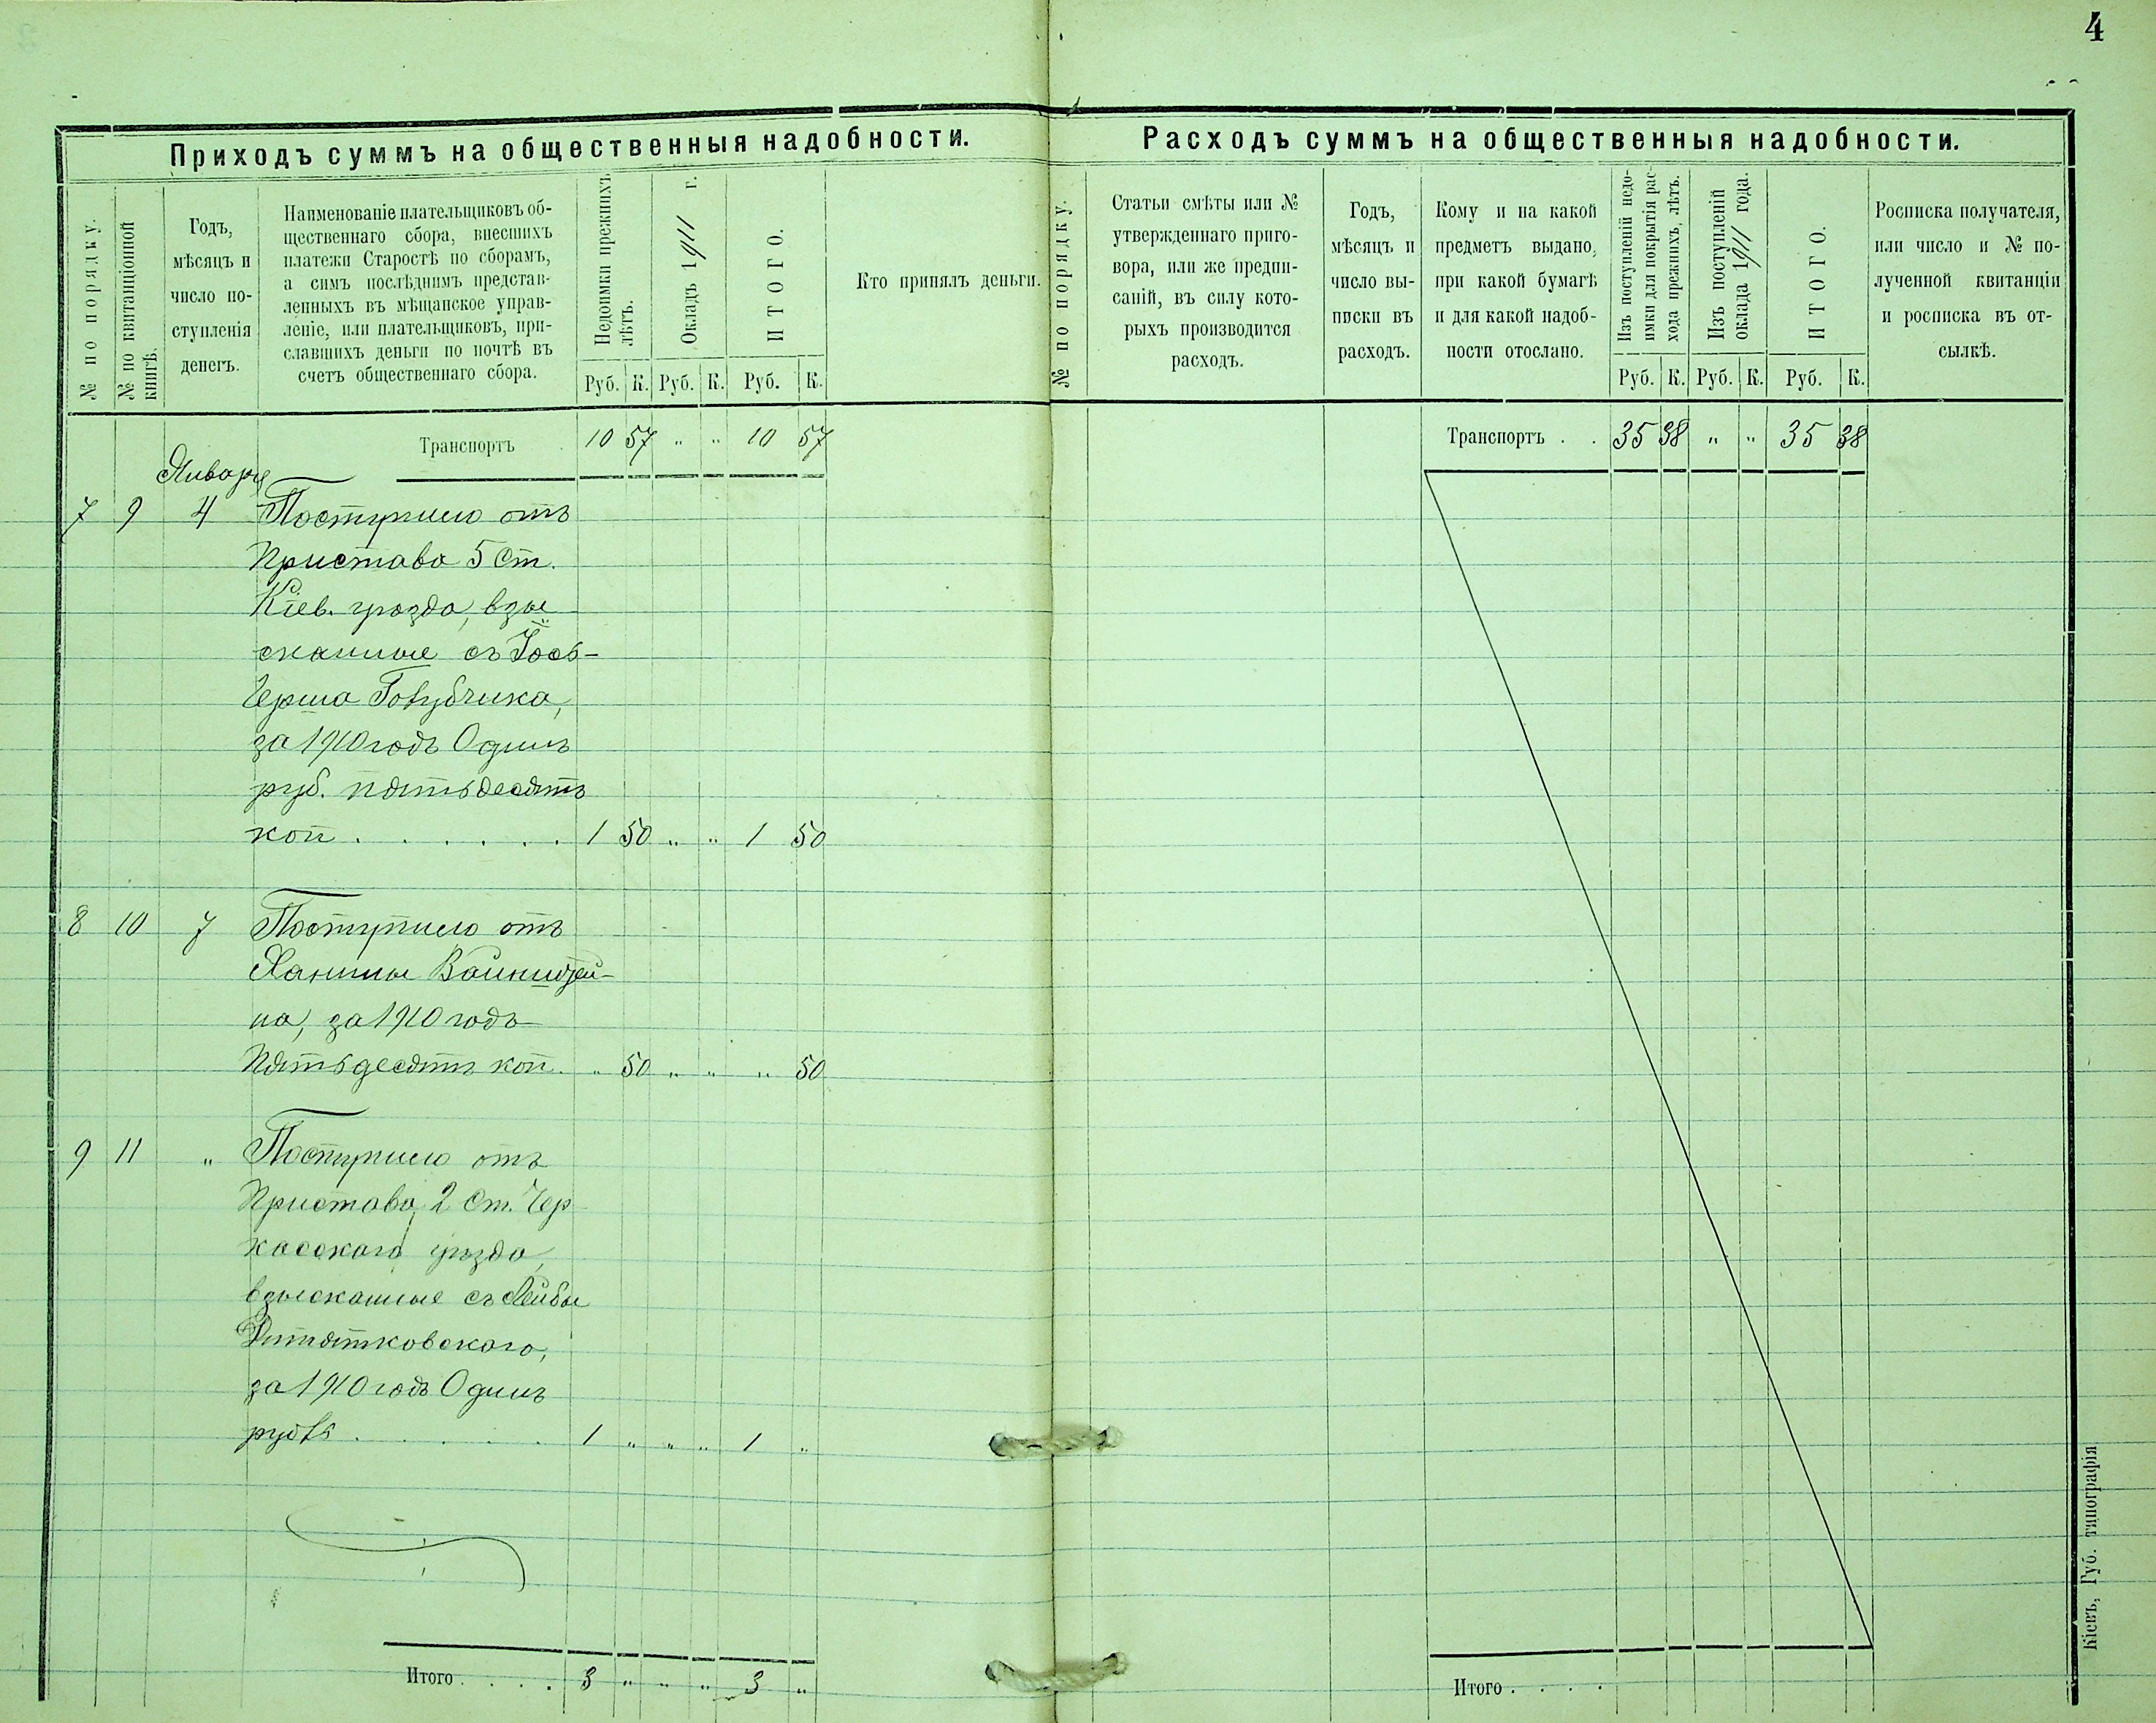 4
Приходъ суммъ на общественныя надобности.
№ по порядку.
№ по квитанціонной
книгѣ.
Годъ,
мѣсяцъ и
число по-
ступленія
денегъ.
Наименованіе плательщиковъ об-
щественнаго сбора, внесшихъ
платежи Старостѣ по сборамъ,
а симъ послѣднимъ представ-
ленныхъ въ мѣщанское управ-
леніе, или плательщиковъ, при-
славшихъ деньги по почтѣ въ
счетъ общественнаго сбора.
Недоимки прежнихъ
лѣтъ.
Окладъ 1911 г.
ИТОГО.
Руб. К. Руб. К. Руб. К.
Кто принялъ деньги.
Транспортъ 10 57 " " 10 57
Января
7 9 4 Поступило отъ
Пристава 5 Ст.
Кіев. уѣзда, взы
сканные съ Іось-
Герша Голубчика,
за 1910 годъ Одинъ
руб. пятьдесятъ
коп . . . . . . 1 50 " " 1 50
8 10 7 Поступило отъ
Ханины Вайнштей-
на, за 1910 годъ
Пятьдесятъ коп. " 50 " " " 50
9 11 " Поступило отъ
Пристава 2 Ст. Чер
касскаго уѣзда,
взысканные съ Лейбы
Дитятковскаго,
за 1910 годъ Одинъ
рубль . . . . . 1 " " " 1 "
Итого . . . . 3 " " " 3 "
Расходъ суммъ на общественныя надобности.
№ по порядку.
Статьи смѣты или №
утвержденнаго приго-
вора, или же предпи-
саній, въ силу кото-
рыхъ производится
расходъ.
Годъ,
мѣсяцъ и
число вы-
писки въ
расходъ.
Кому и на какой
предметъ выдано,
при какой бумагѣ
и для какой надоб-
ности отослано.
Изъ поступленій недо-
имки для покрытія рас-
хода прежнихъ, лѣтъ.
Изъ поступленій
оклада 1911 года.
ИТОГО.
Руб. К. Руб. К. Руб. К.
Росписка получателя,
или число и № по-
лученной квитанціи
и росписка въ от-
сылкѣ.
Транспортъ . . 35 38 " " 35 38
Итого . . . .
Кіевъ, Губ. типографія